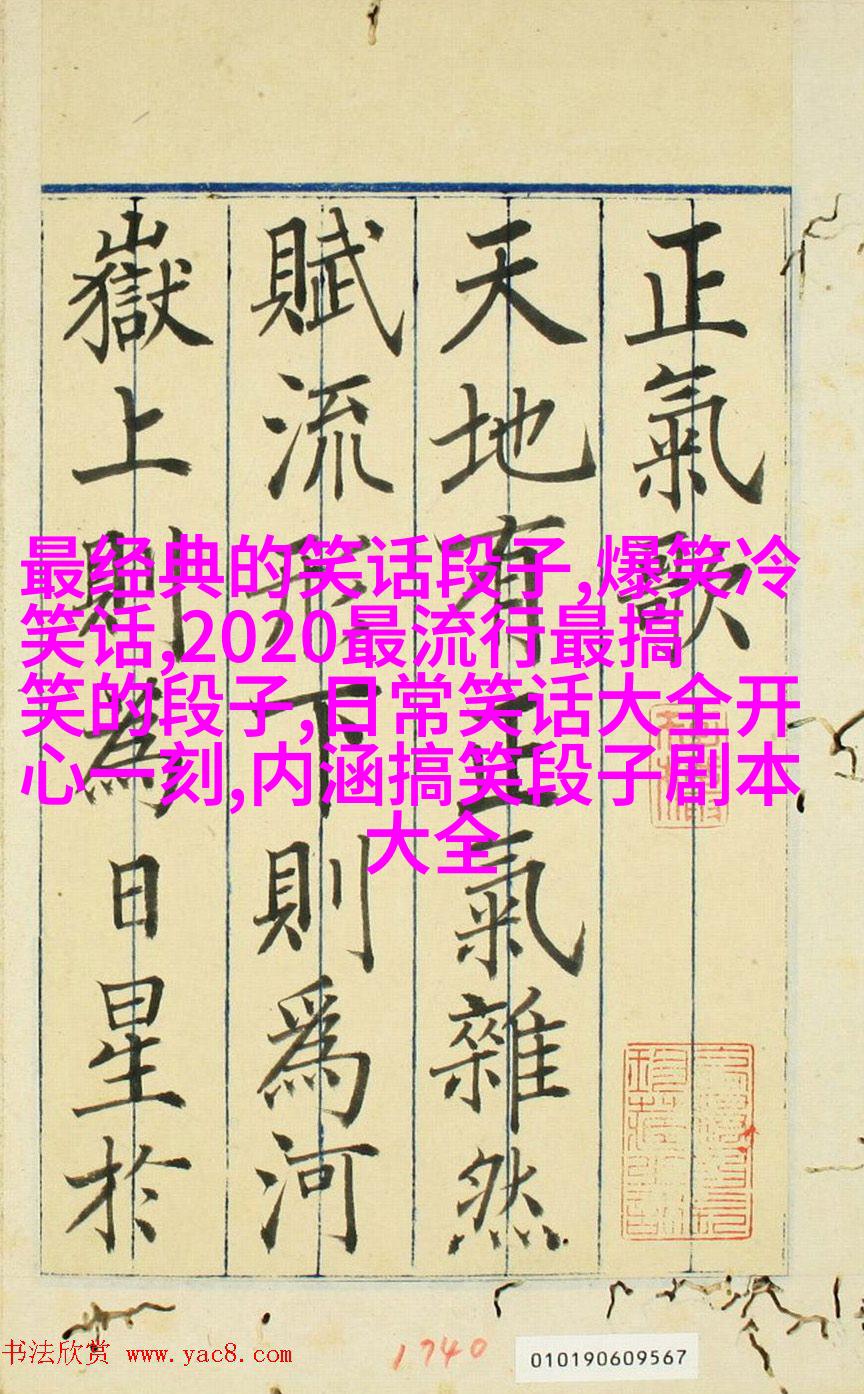 正氣歌
天地有正氣雜然
賦流形下則爲河
嶽上則爲日星於
最经典的笑话段子,爆笑冷
笑话,2020最流行最搞
笑的段子,日常笑话大全开
心一刻,内涵搞笑段子剧本
大全
书法欣赏 www.yac8.com
1740
010190609567